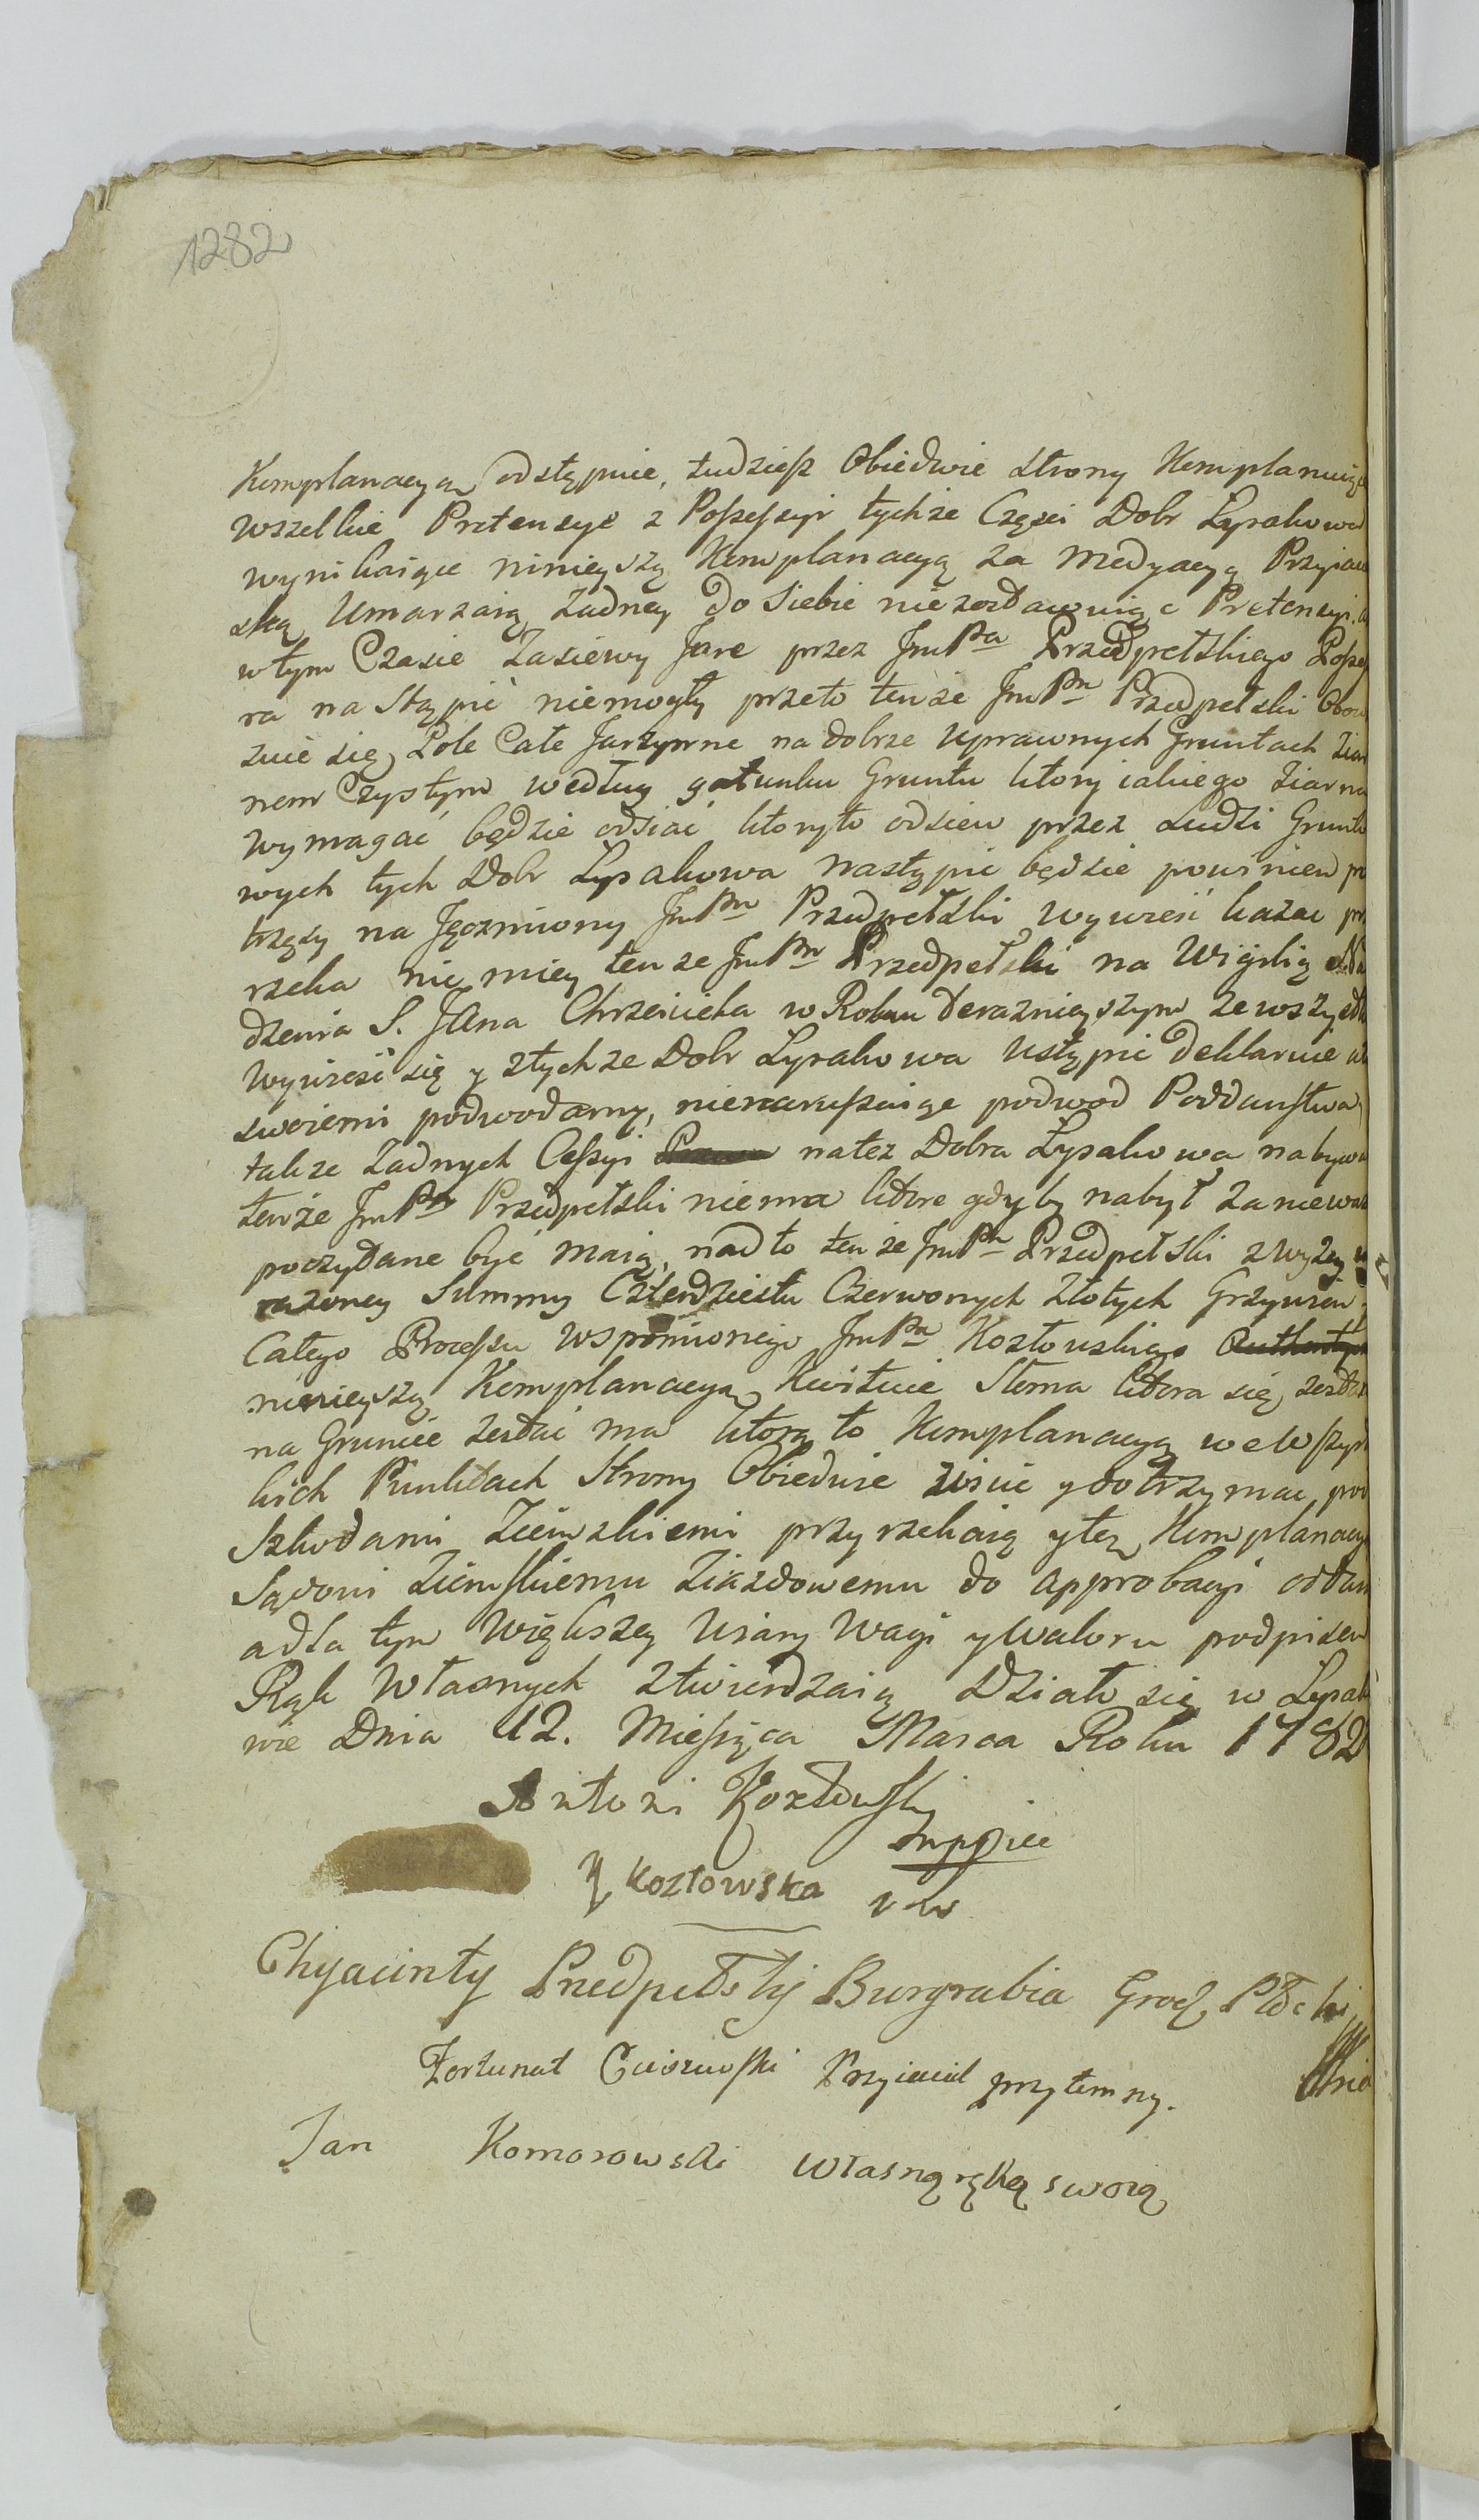 1282
Komplanacyą odstępuie, tudziesz Obiedwie Strony Komplanuiąc
wszelkie Pretensye z Possessyi tychże Częsci Dobr Łysakowa
wynikaiące ninieyszą Komplanacyą za Medyacyą Przyiaciel
ską Umarzaią Zadney do Siebie niezostawuiąc Pretensyi. a
wtym Czasie Zasiewy Jare przez JmPa Przedpełskiego Posses
ra nastąpić niemogły przeto tenże JmPn Przedpełski Obow
zuie się Pole Całe Jarzynne na dobrze uprawnych Gruntach Ziar
nem Czystym według gatunku Gruntu ktory iakiego Ziarna
wymagać będzie odsiać ktoryto odsiew przez Ludzi Grunto
wych tych Dobr Łysakowa nastąpić będzie powinien
trzęsy na Jęczmiony JmPn Przedpełski wywieść kazać
rzeka niemniey tenże JmPn Przedpełski na Wigilią Naro
dzenia S. Jana Chrzciciela w Roku Teraznieyszym ze wszystk
wywieść się y ztychże Dobr Łysakowa ustąpić deklaruie
swoiemi podwodamy, nienaruszaiąc podwod Poddaństwa
także Zadnych Cessyi natez Dobra Łysakowa nabywa
tenże JmPn Przedpełski niema ktore gdyby nabył za niewa
poczytane być maią, nadto tenże JmPn Przedpełski zwyzey w
rażoney Summy Czterdziestu Czerwonych Złotych Grzywien
Całego Processu wspomnionego JmPa Kozłowskiego
ninieyszą Komplanacyą kwituie Słoma ktora się
na Gruncie zostać ma ktorą to Komplanacyą we Wszyst
kich Punktach Strony Obiedwie ziscic y dotrzymać pod
Szkodami Ziemskiemi przyrzekaią y tęz Komplanacyą
Sądowi Ziemskiemu Ziazdowemu do approbacyi oddan
a dla tym większey wiary wagi y waloru podpisem
Rąk Własnych ztwierdzaią Działo się w Łysako
wie Dnia 12. Miesiąca Marca Roku 1782
Antoni Kozłowski
mppria
Kozłowska
Chyacinty Przedpełsky Burgrabia Grodz Płocki
Fortunat Przyiaciel przytemny.
Jan Komorowski własną ręką swoią